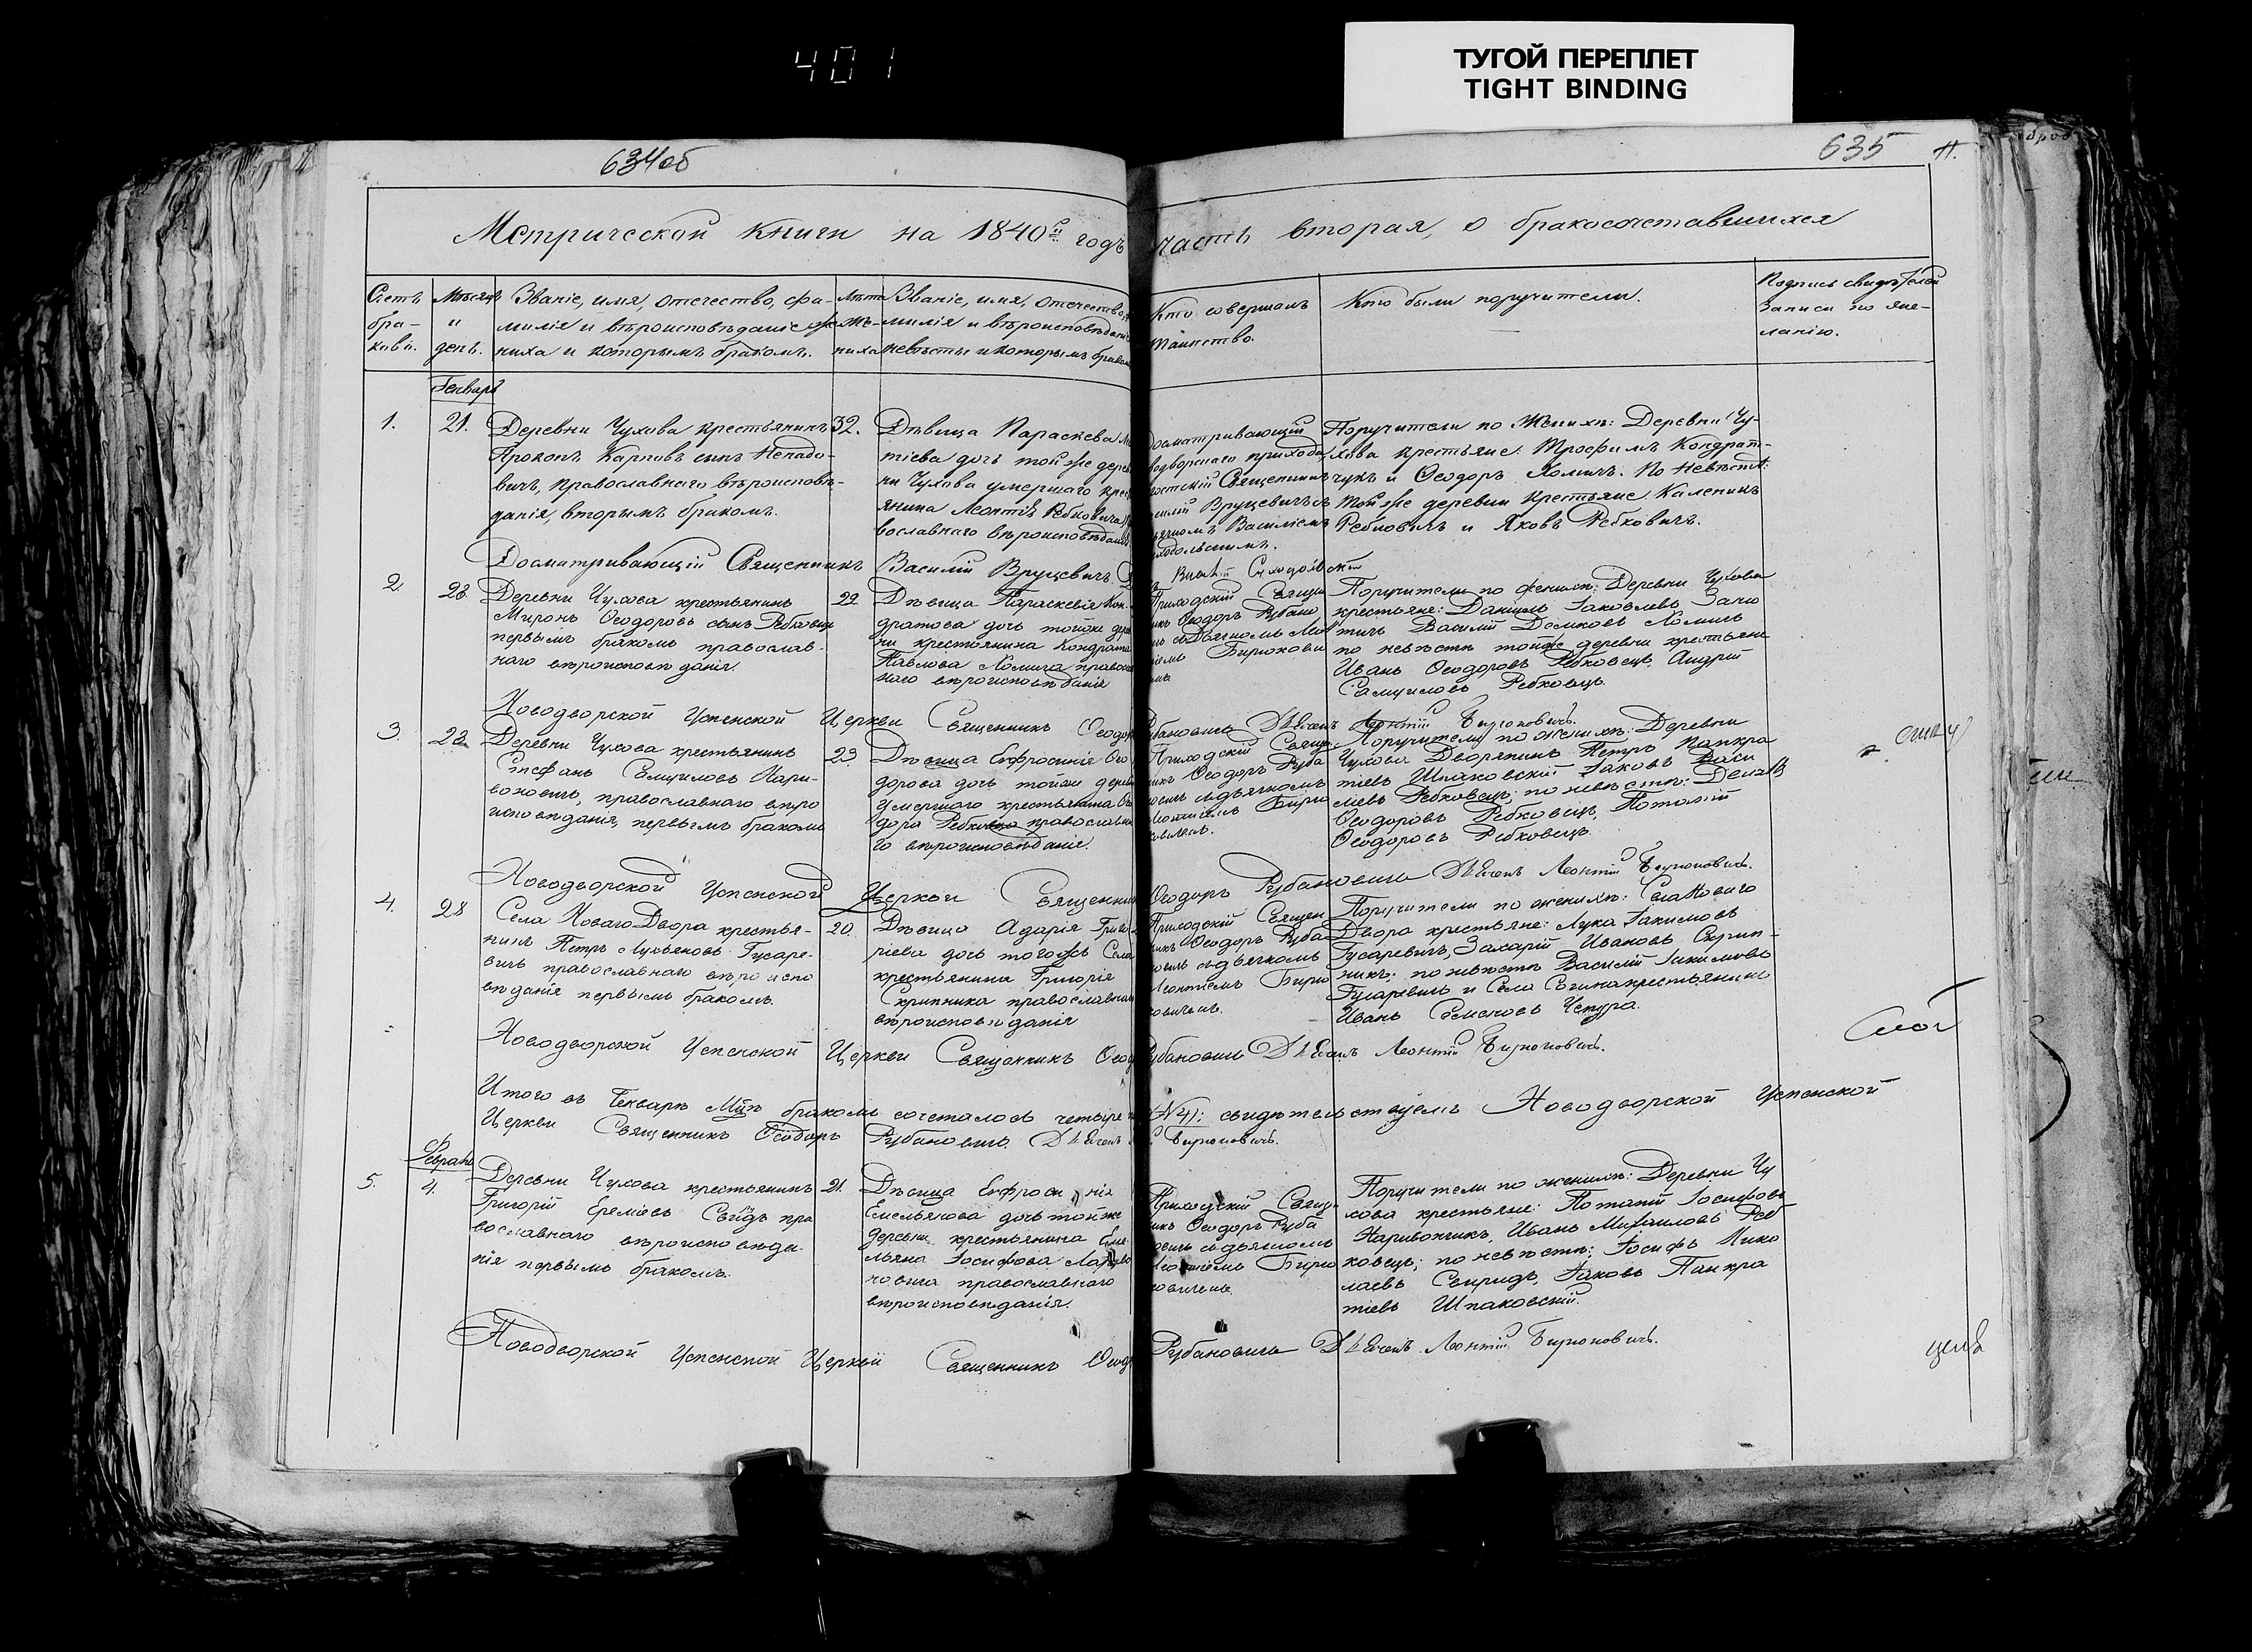 401
ТУГОЙ ПЕРЕПЛЕТ
TIGHT BINDING
634об
635
Метрической книги на 1840й годъ
часть вторая, о бракосочетавшихся
Счетъ бра-ковъ.
Мѣсяцъ и день.
Званіе, имя, отечество, фа-
милія и вѣроисповѣданіе же-
ниха и которымъ бракомъ.
Лѣта
же-
ниха
Званіе, имя, отечество,
милія и вѣроисповѣданіе
невѣсты и которымъ браком
Кто совершалъ
таинство.
Кто были поручители.
Подпись свидѣтелей
записи по же-
ланію.
Генварь
1.
21.
Деревни Чухова крестьянинъ
Прокопъ Карповъ сынъ Непадо-
вичъ, православнаго вѣроисповѣ-
данія, вторымъ бракомъ.
32.
Дѣвица Параскева
тіева дочь той же дерев
ни Чухова умершаго крес
янина Леонтія Ребковича
вославнаго вѣроисповѣданія
Досматривающій
водворскаго прихода,
Священникъ
Вруцевичъ съ
Василіемъ
Поручители по женихѣ: Деревни Чу-
хова крестьяне: Трофимъ Кондрат-
чукъ и Ѳеодоръ Хомичъ. По невѣстѣ:
той же деревни крестьяне Каленикъ
Ребковичъ и Яковъ Ребковичъ.
Досматривающій Священникъ Василій Вруцевичъ
2.
28
Деревни Чухова крестьянинъ
Миронъ Ѳеодоровъ сынъ Ребковецъ
первымъ бракомъ православ-
наго вѣроисповѣданія.
22
Дѣвица Параскевія Кон-
дратова дочь тойже дере
ни крестьянина Кондрата
Павлова Хомича правосл
наго вѣроисповѣданія
Приходскій Свяще
никъ Ѳеодоръ Рубано
съ Дьячкомъ Леон
тіемъ Бирюкови
Поручители по женихѣ: Деревни Чухова
крестьяне: Даніилъ Іаковлевъ
Василій Хомичъ
по невѣстѣ тойже деревни крестьяне
Иванъ Ѳеодоровъ Ребковецъ, Андрій
Самуиловъ Ребковецъ.
Новодворской Успенской Церкви Священникъ Ѳеодоръ Рубановичъ Дьячекъ Леонтій Бирюковичъ.
3.
28
Деревни Чухова крестьянинъ
Стефанъ Самуиловъ Нари-
воновичъ, православнаго вѣро
исповѣданія, первымъ бракомъ
23
Дѣвица Евфросинія Ѳео
дорова дочь тойже дерев
умершаго крестьянина Ѳео
дора Ребковца православна
го вѣроисповѣданія.
Приходскій Свяще
никъ Ѳеодоръ Руба
новичъ съ дьячкомъ
Леонтіемъ Бирю
ковичемъ.
Поручители по женихѣ: Деревни
Чухова Дворянинъ Петръ Панкра
тіевъ Шпаковскій Іаковъ Васи
лievъ Ребковецъ; по невѣстѣ:
Ѳеодоровъ Ребковецъ, Потапій
Ѳеодоровъ Ребковецъ.
Новодворской Успенской Церкви Священникъ Ѳеодоръ Рубановичъ Дьячекъ Леонтій Бирюковичъ.
4.
28
Села Новаго Двора крестья-
нинъ Петръ Лукьяновъ Гусаре-
вичъ православнаго вѣроиспо
вѣданія первымъ бракомъ.
20.
Дѣвица Адарія Григо
ріева дочь тогожъ Села
крестьянина Григорія
Скрипника православнаго
вѣроисповѣданія
Приходскій Священ
никъ Ѳеодоръ Руба
новичъ съ дьячкомъ
Леонтіемъ Бирю
ковичемъ.
Поручители по женихѣ: Села Новаго
Двора крестьяне: Лука Іакимовъ
Гусаревичъ, Захарій Ивановъ Скрип-
никъ; по невѣстѣ Василій Іакимовъ
Гусаревичъ и Села крестьянинъ
Иванъ Семеновъ Чепура.
Новодворской Успенской Церкви Священникъ Ѳеодоръ Рубановичъ Дьячекъ Леонтій Бирюковичъ.
Итого въ Генварѣ Мцѣ бракомъ сочеталось четыре (№4): свидѣтельствуемъ Новодворской Успенской
Церкви Священникъ Ѳеодоръ Рубановичъ. Дьячекъ Бирюковичъ.
Февраль
5.
4.
Деревни Чухова крестьянинъ
Григорій Ереміевъ Свидъ пра
вославнаго вѣроисповѣда-
нія первымъ бракомъ.
21.
Дѣвица Евфросинія
Емельянова дочь тойже
деревни крестьянина Еме-
льяна Іосифова
православнаго
вѣроисповѣданія.
Приходскій Свяще
никъ Ѳеодоръ Руба
новичъ съ дьячкомъ
Леонтіемъ Бирю
ковичемъ
Поручители по женихѣ: Деревни Чу
хова крестьяне: Потапій Іосифовъ
Наривончикъ, Иванъ Михаиловъ Реб
ковецъ; по невѣстѣ: Іосифъ Нико
лаевъ Свиридъ, Іаковъ Панкра
тіевъ Шпаковскій.
Новодворской Успенской Церкви Священникъ Ѳеодо Рубановичъ Дьячекъ Леонтій Бирюковичъ.